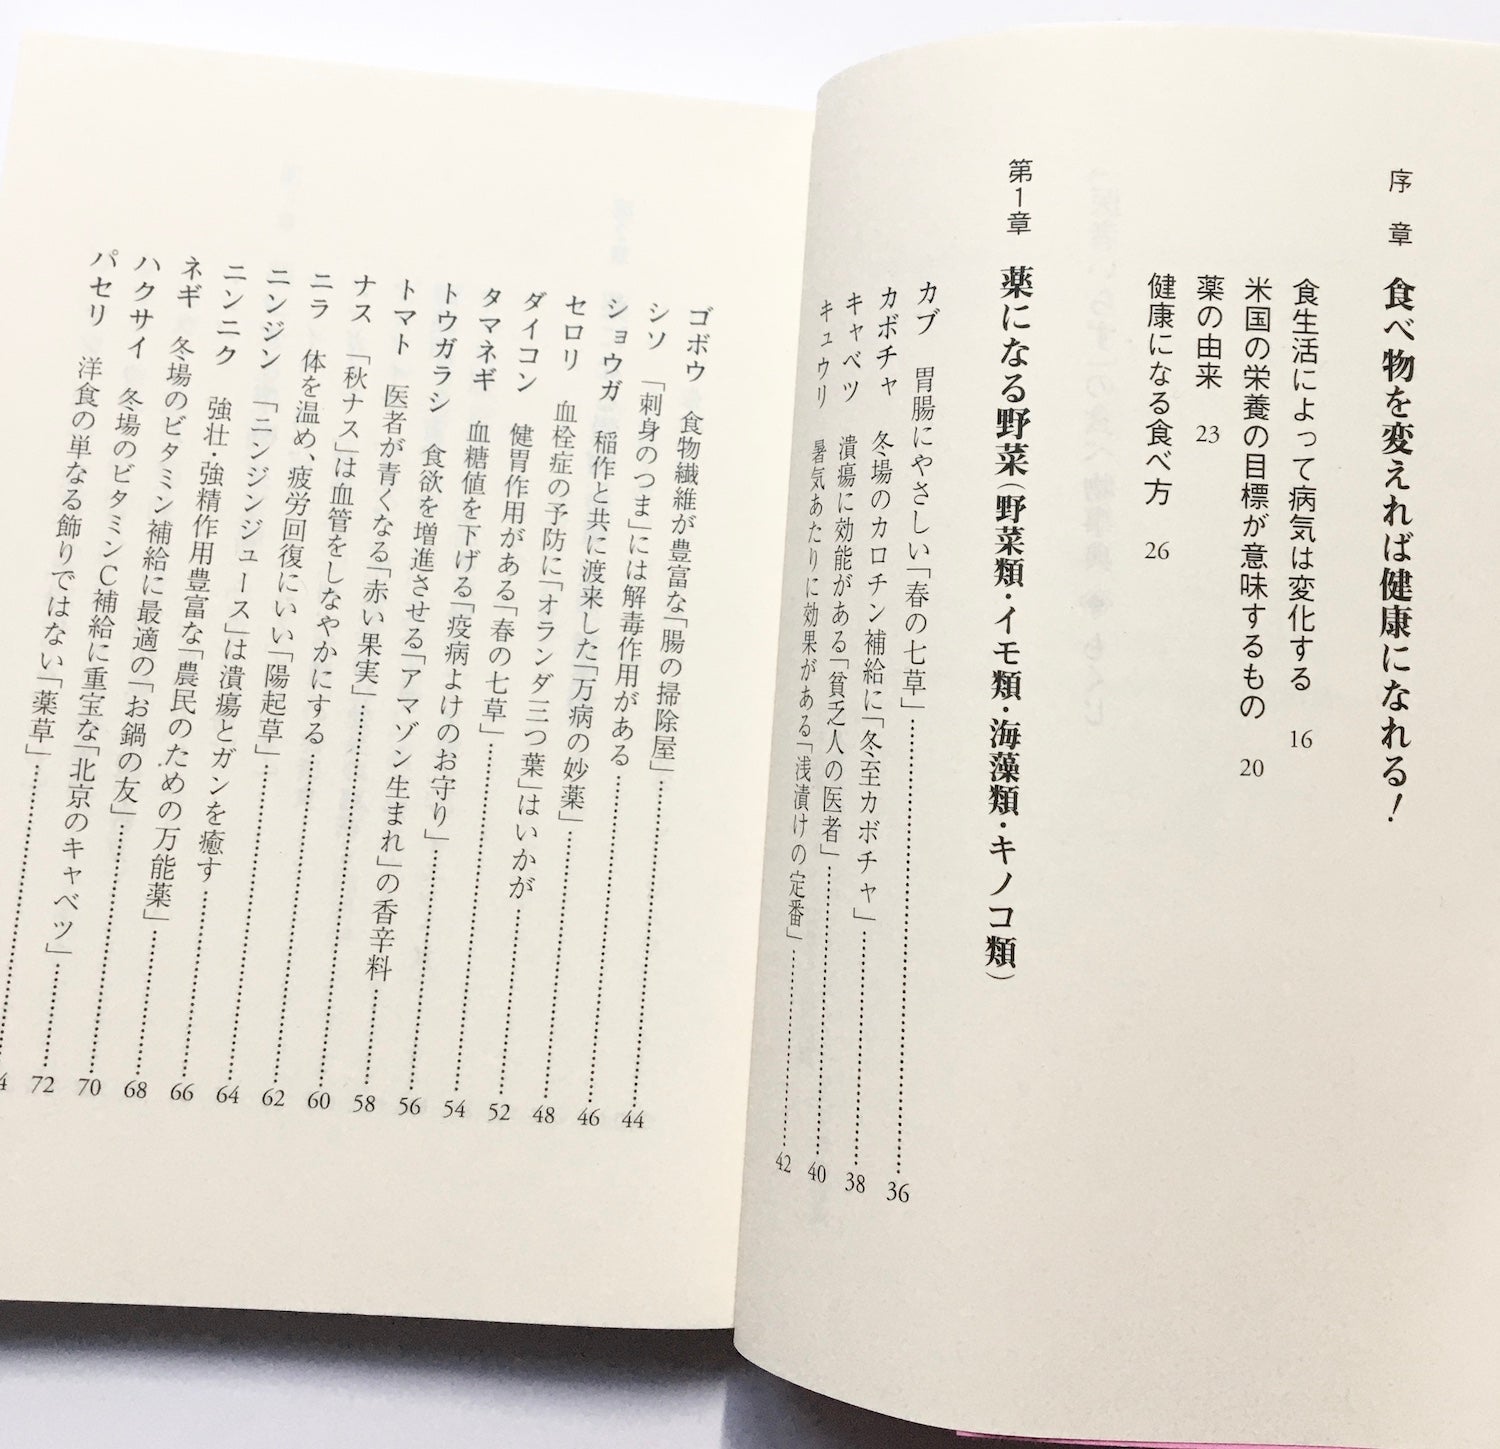 序章 食べ物を変えれば健康になれる！
食生活によって病気は変化する 16
米国の栄養の目標が意味するもの 20
薬の由来 23
健康になる食べ方 26
第1章 薬になる野菜（野菜類・イモ類・海藻類・キノコ類）
カブ 胃腸にやさしい「春の七草」……36
カボチャ 冬場のカロチン補給に「冬至カボチャ」……38
キャベツ 潰瘍に効能がある「貧乏人の医者」……40
キュウリ 暑気あたりに効果がある「浅漬けの定番」……42
ゴボウ 食物繊維が豊富な「腸の掃除屋」……44
シソ 「刺身のつま」には解毒作用がある……46
ショウガ 稲作と共に渡来した「万病の妙薬」……48
セロリ 血栓症の予防に「オランダ三つ葉」はいかが……52
ダイコン 健胃作用がある「春の七草」……54
タマネギ 血糖値を下げる「疫病よけのお守り」……56
トウガラシ 食欲を増進させる「アマゾン生まれ」の香辛料……58
トマト 医者が青くなる「赤い果実」……60
ナス 「秋ナス」は血管をしなやかにする……62
ニラ 体を温め、疲労回復にいい「陽起草」……64
ニンジン 「ニンジンジュース」は潰瘍とガンを癒す……66
ニンニク 強壮・強精作用豊富な「農民のための万能薬」……68
ネギ 冬場のビタミン補給に最適の「お鍋の友」……70
ハクサイ 冬場のビタミンC補給に重宝な「北京のキャベツ」……72
パセリ 洋食の単なる飾りではない「薬草」……4